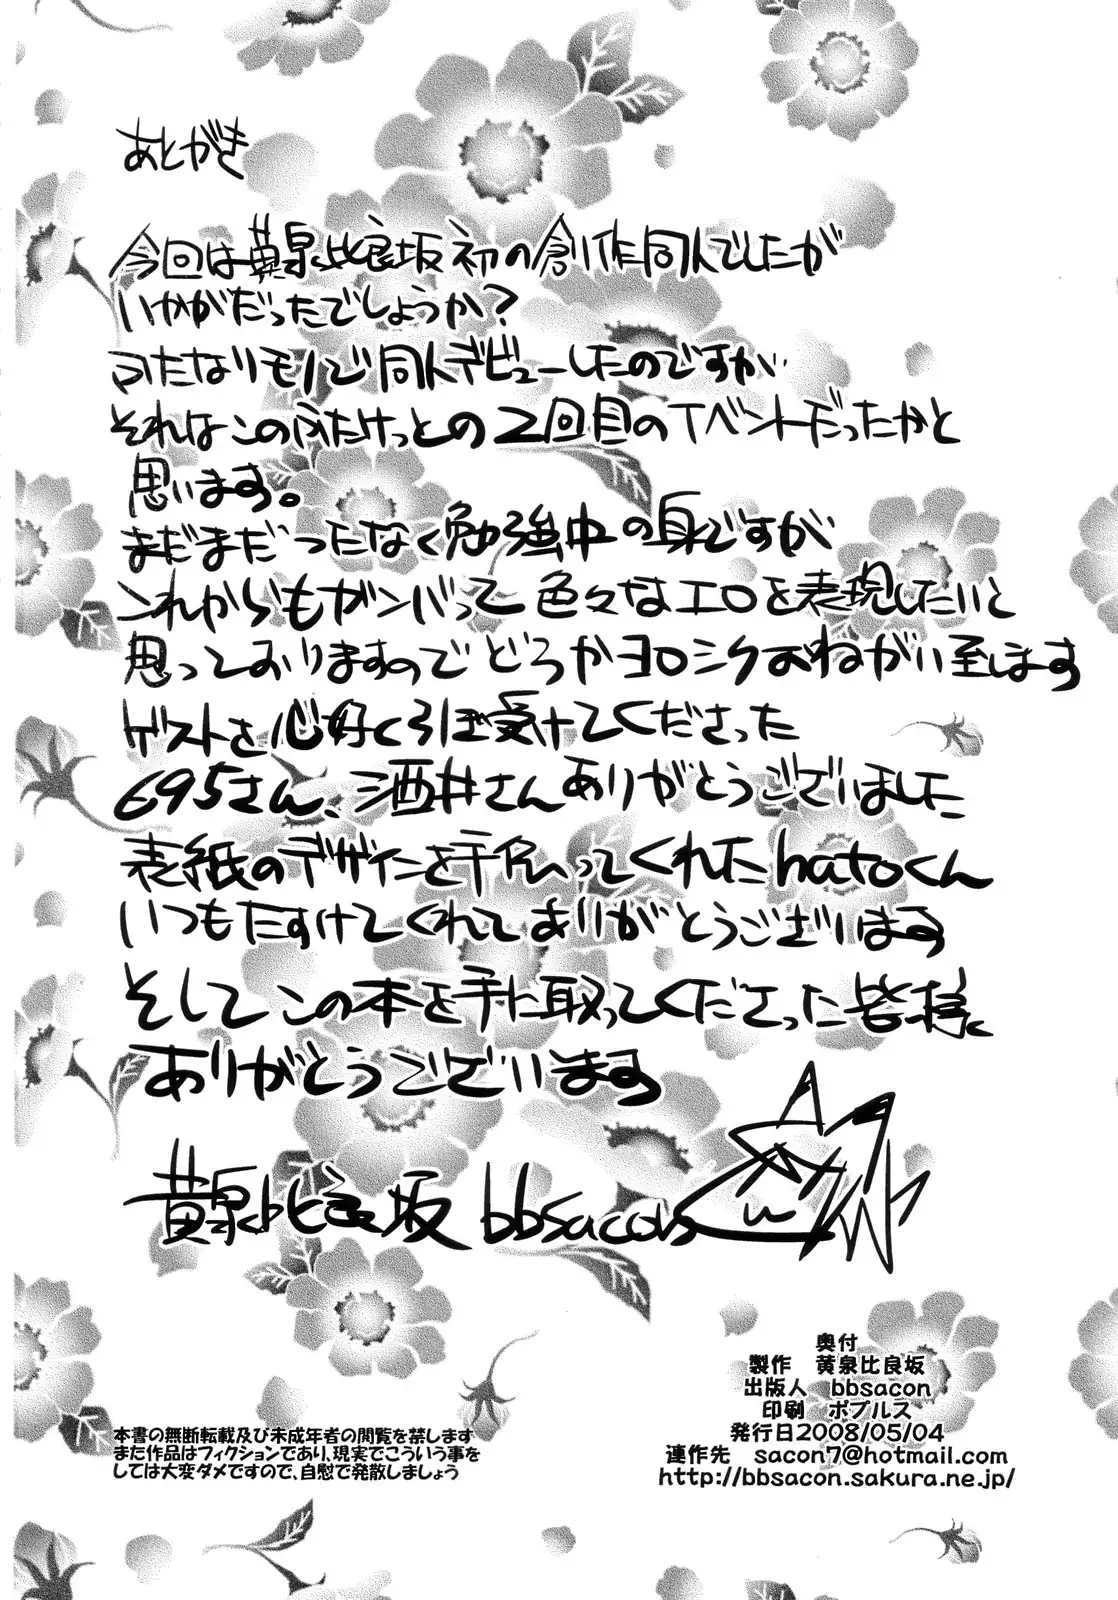 あとがき
今回は黄泉比良坂初の創作同人でしたが
いかがだったでしょうか?
ふたなりモノで同人デビューしたのですが
それはこのふたけっとの2回目のイベントだったかと
思います。
まだまだつたなく勉強中の身ですが
これからもガンバって色々なエロを表現したいと
思っておりますのでどうかヨロシクおねがい至します
ゲストを心好くひき受けてくださった
695さん、酒井さんありがとうございました
表紙のデザインを手伝ってくれたhatoくん
いつもたすけてくれてありがとうございます
そしてこの本を手に取ってくださった皆様
ありがとうございます
黄泉比良坂 bbsacon
奥付
製作 黄泉比良坂
出版人 bbsacon
印刷 ポプルス
発行日2008/05/04
連作先 sacon7@hotmail.com
http://bbsacon.sakura.ne.jp/
本書の無断転載及び未成年者の閲覧を禁します
また作品はフィクションであり、現実でこういう事を
しては大変ダメですので、自慰で発散しましょう